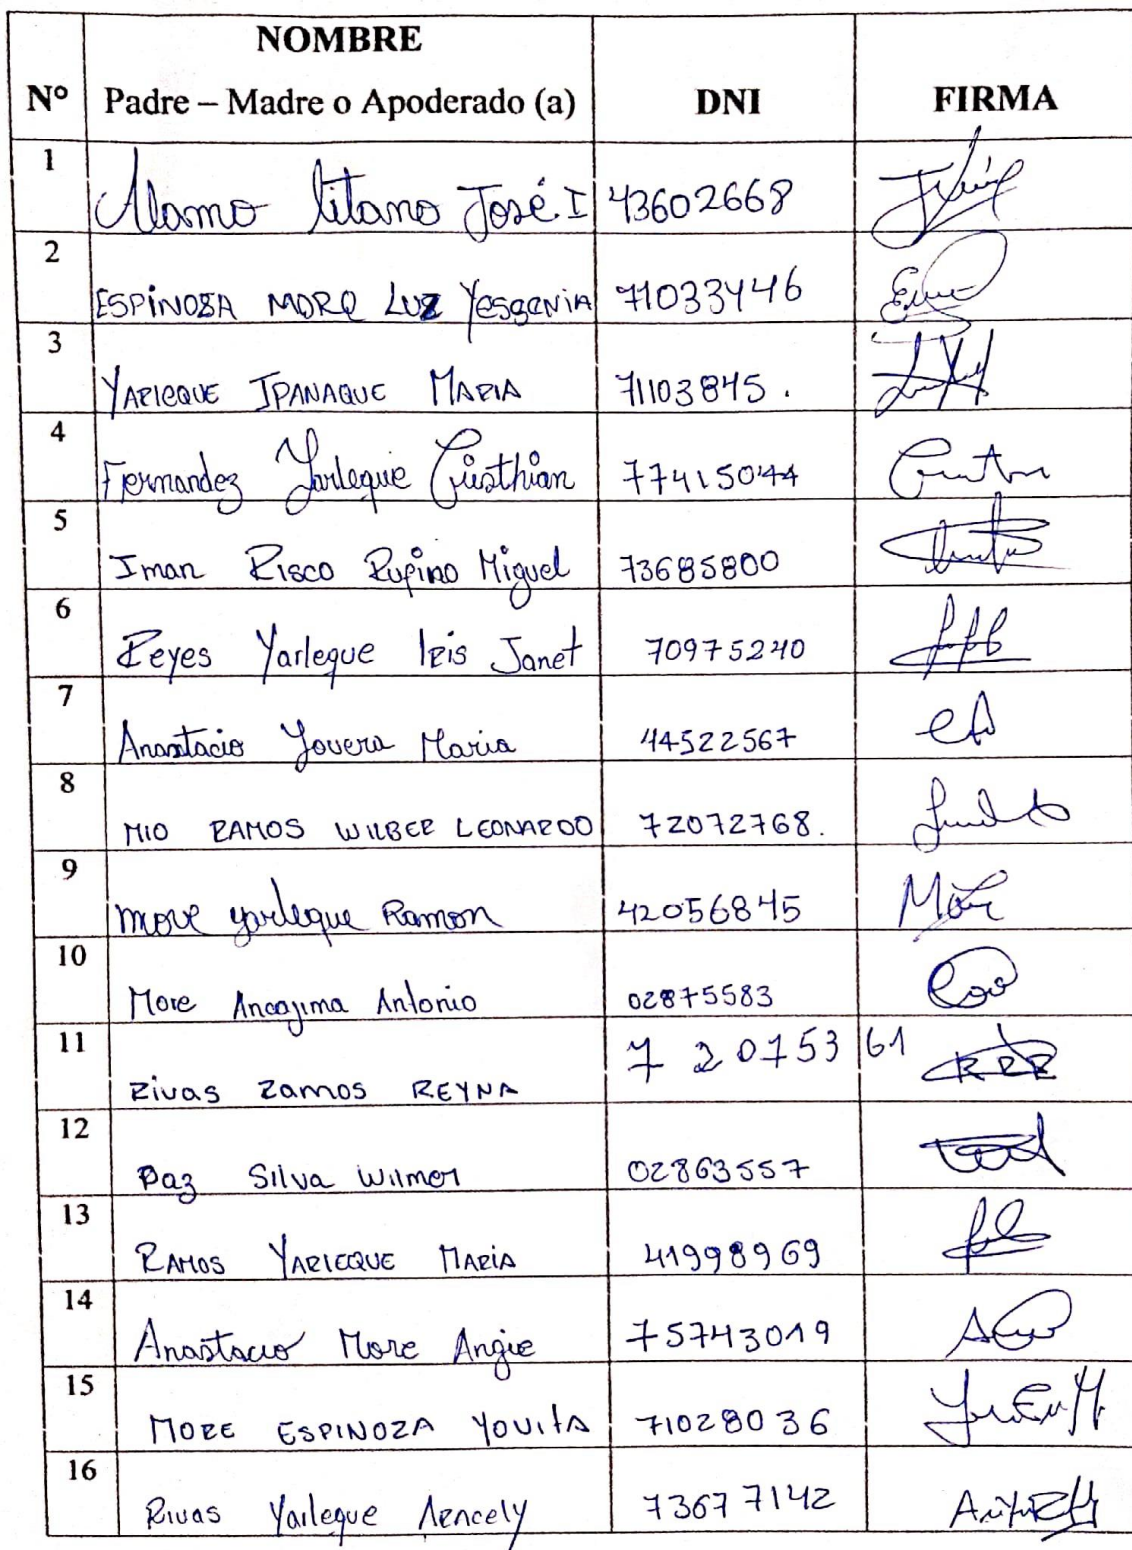 NOMBRE
N° Padre – Madre o Apoderado (a) DNI FIRMA
1 Alamo Litano José I 43602668
2 ESPINOZA MORE LUZ YESSENIA 71033446
3 YARLEQUE IPANAQUE MARIA 71103845.
4 Fernandez Yarleque Cristhian 77415044
5 Iman Risco Rufino Miguel 73685800
6 Reyes Yarleque Iris Janet 70975240
7 Anastacio Yovera Maria 44522567
8 MIO RAMOS WILBER LEONARDO 72072768.
9 more yarleque Ramon 42056845
10 More Ancajima Antonio 02875583
11 Rivas Ramos REYNA 7 2 0753 61
12 Paz Silva Wilmer 02863557
13 RAMOS YARLEQUE MARIA 41998969
14 Anastacio More Angie 75743019
15 MORE ESPINOZA YOVITA 71028036
16 Rivas Yarleque Arncely 73677142